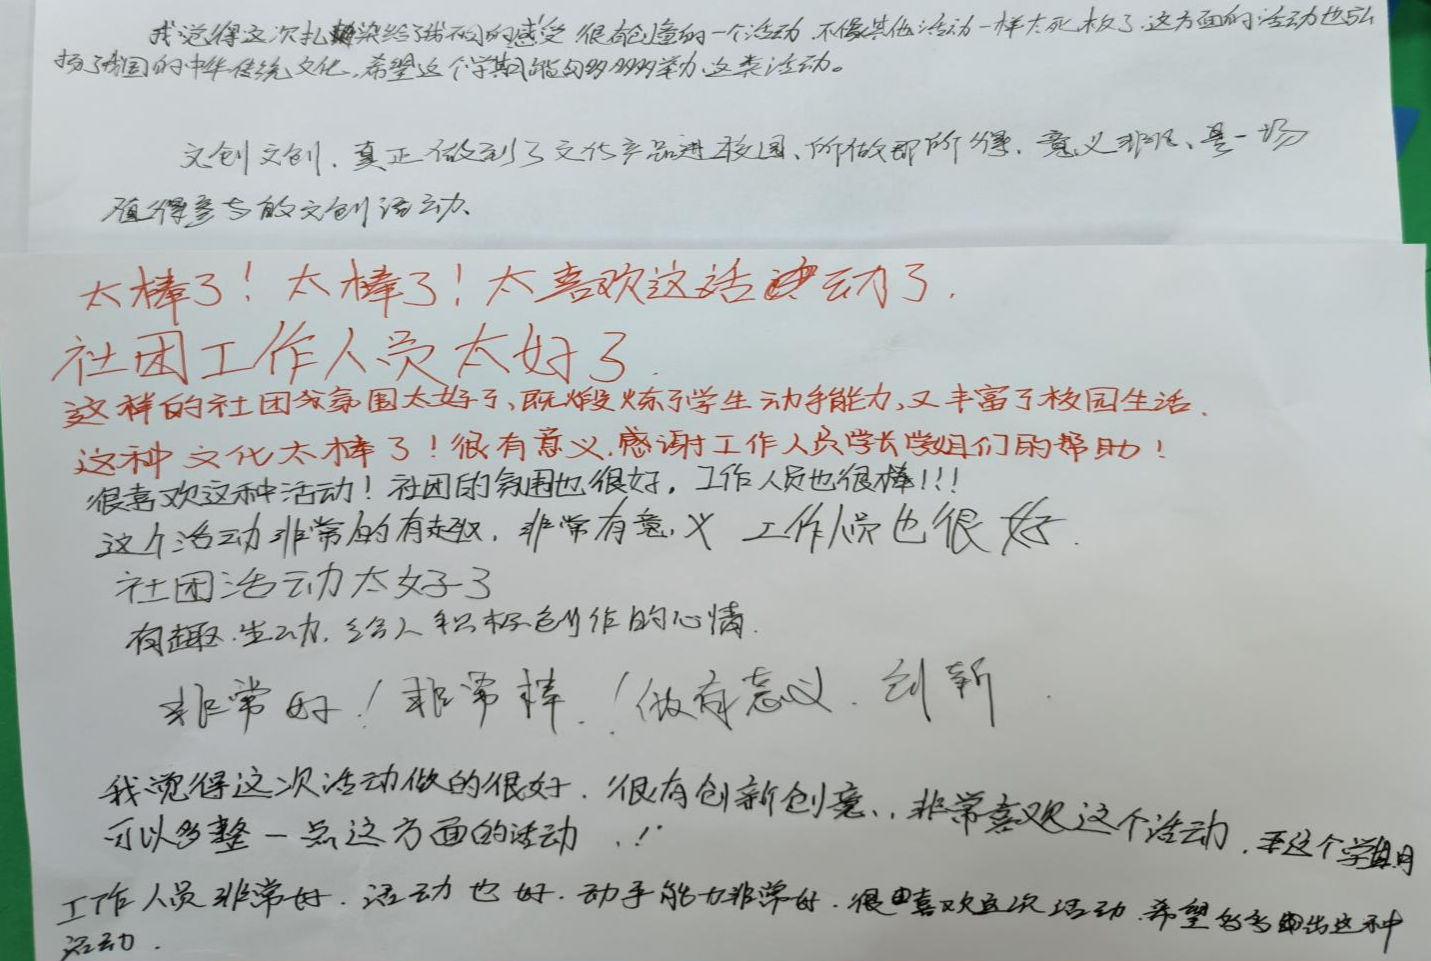 我觉得这次扎染给了我不同的感受,很有创意的一个活动,不像其他活动一样太死板了,这方面的活动也弘
扬了我国的中华传统文化,希望这个学期能多多举办这类活动。
文创文创,真正做到了文化产品进校园、所做即所得、意义非凡、是一场
值得参与的文创活动、
太棒了!太棒了!太喜欢这活动了.
社团工作人员太好了.
这样的社团氛围太好了,既煅炼了学生动手能力,又丰富了校园生活.
这种文化太棒了!很有意义.感谢工作人员学长学姐们的帮助!
很喜欢这种活动!社团的氛围也很好,工作人员也很棒!!!
这个活动非常的有趣,非常有意义 工作人员也很好.
社团活动太好了
有趣.生动.给人积极创作的心情.
非常好!非常棒.!做有意义.创新.
我觉得这次活动做的很好.很有创新创意,非常喜欢这个活动.这个学期
可以多整一点这方面的活动.!
工作人员非常好.活动也好.动手能力非常好.很喜欢这次活动.希望多多出这种
活动.